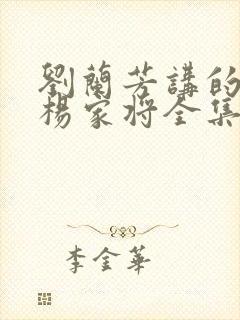 劉蘭芳講的
楊家將全集
李金華